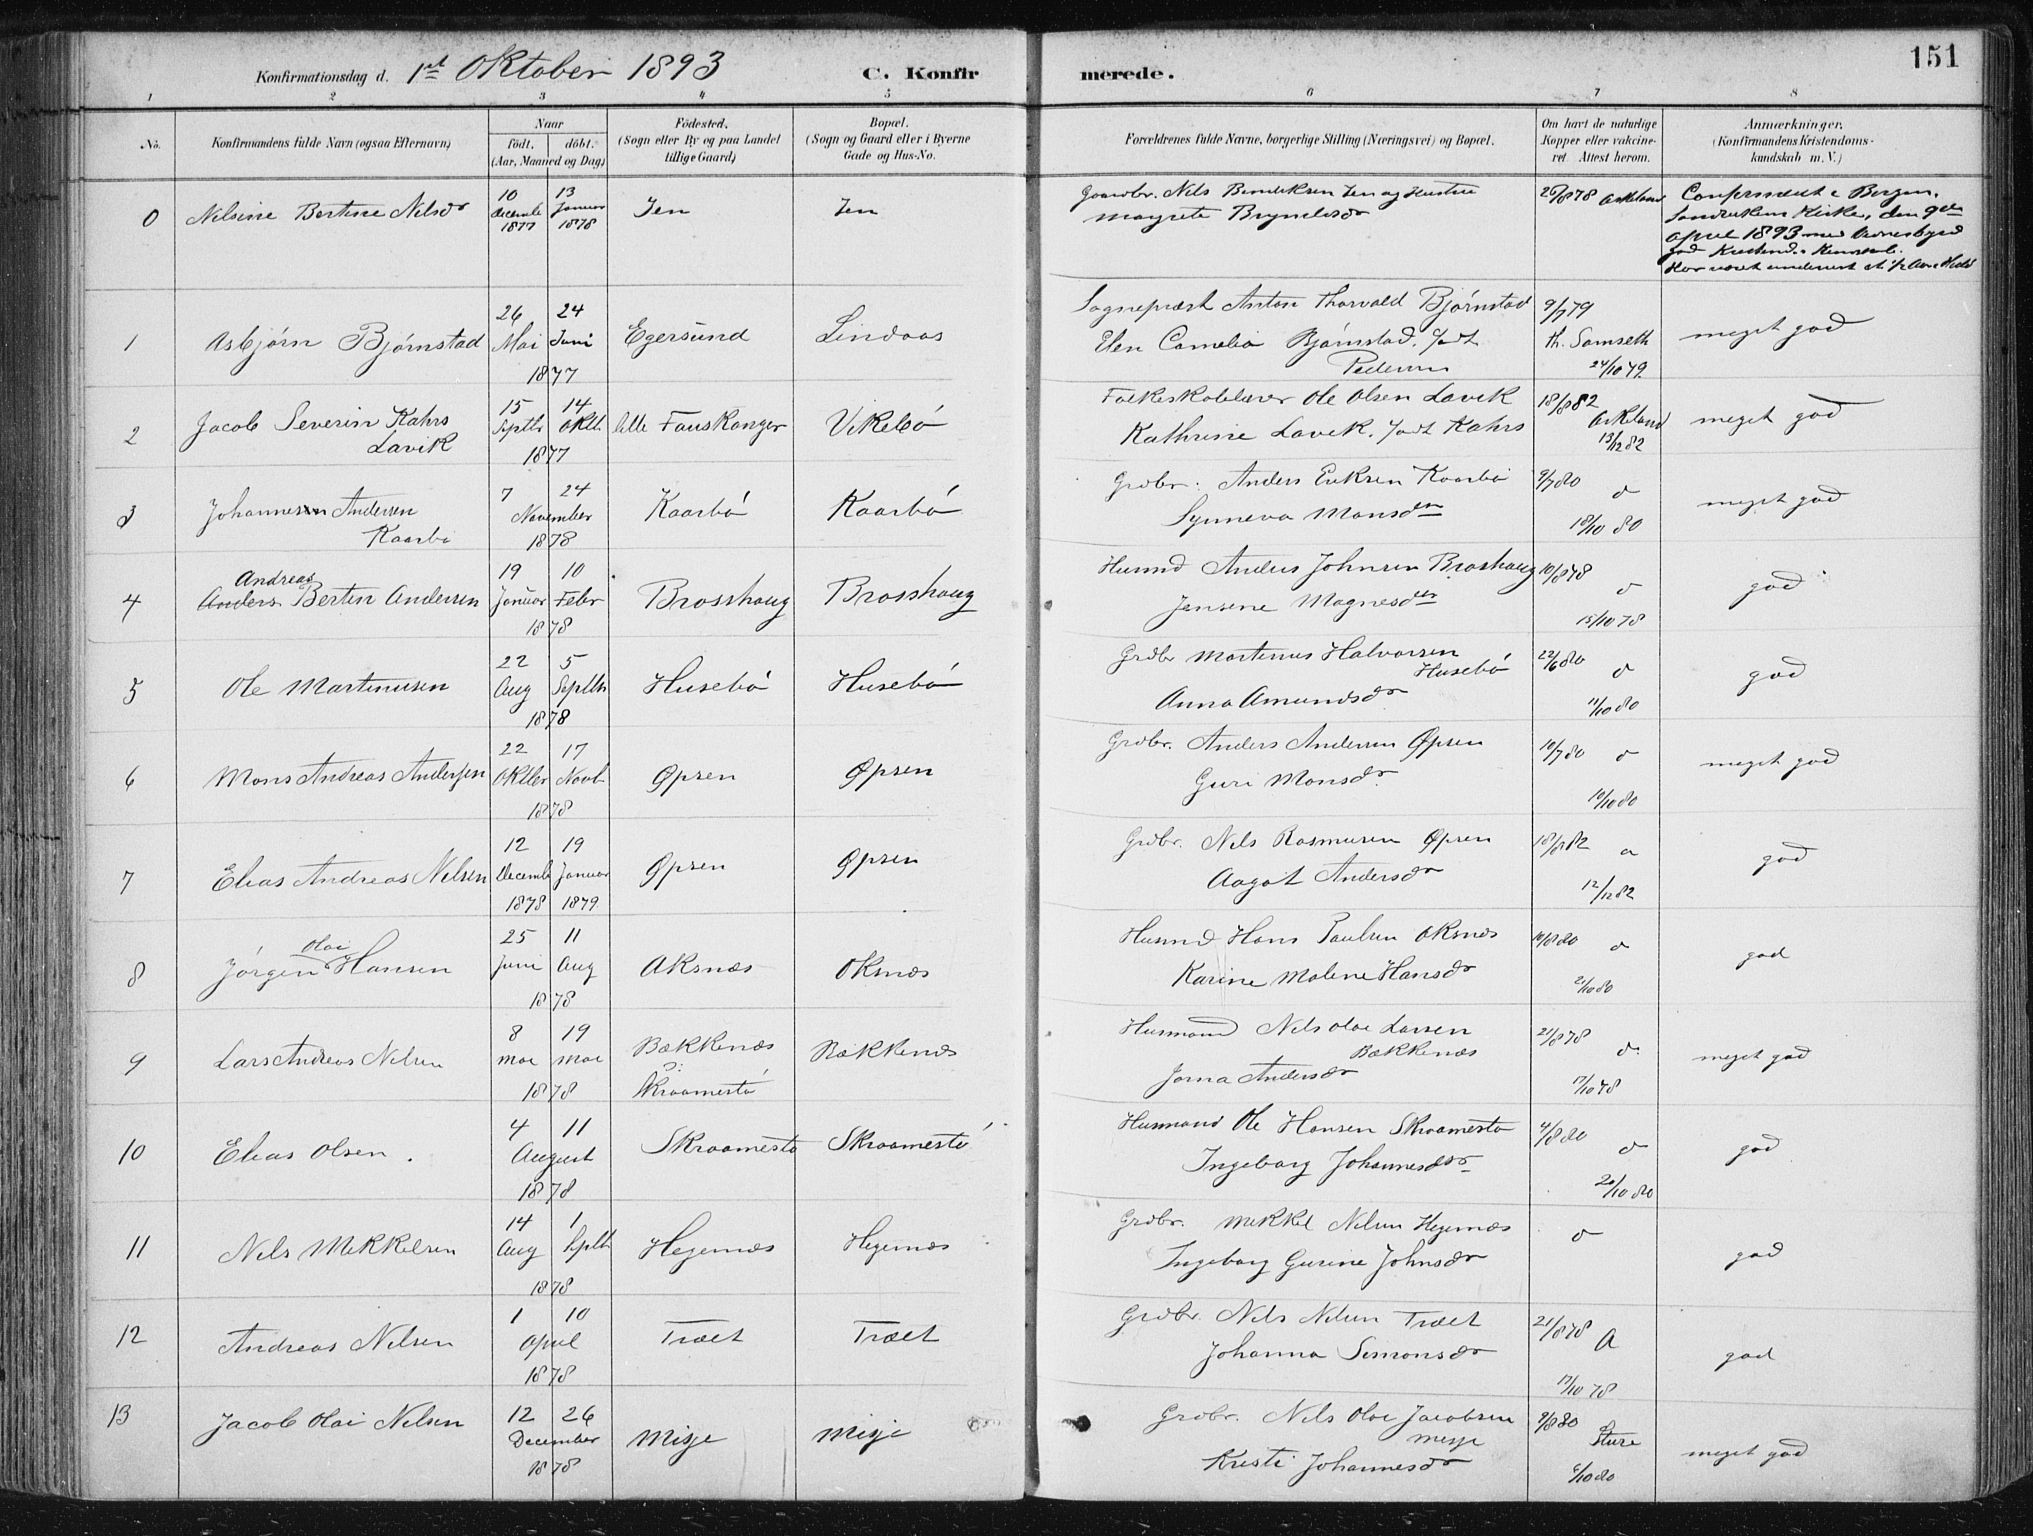 151
Konfirmationsdag d. 1ste Oktober 1893 C. Konfirmerede.
1 2 3 4 5 6 7 8
No.
Konfirmandens fulde Navn (ogsaa Efternavn)
Naar
født. døbt.
(Aar, Maaned og Dag)
Fødested.
(Sogn eller By og paa Landet
tillige Gaard)
Bopæl.
(Sogn og Gaard eller i Byerne
Gade og Hus-No.
Forældrenes fulde Navne, borgerlige Stilling (Næringsvei) og Bopæl.
Om havt de naturlige
Kopper eller vakcine-
ret. Attest herom.
Anmærkninger.
(Konfirmandens Kristendoms-
kundskab m. V.)
0 Nilsine Bertine Nilsdr 10 13 Gaardbr. Nils Bendiksen
Decembr Januar
1877 1878
Margrete Brynildsdr
Askeland
Bergen,
Kirke, den 9de
April 1893
1 Asbjørn Bjørnstad 26 24 Egersund Lindaas
Mai Juni
1877
Sognepræst Anton Thorvald Bjørnstad 9/7 79
Bjørnstad, født Th. Samseth
Pedersen 24/10 79
meget god
2 Jacob Severin Kahrs 15 14 lille Fauskanger Vikebø
Lavik Septbr Oktb.
1877
Folkeskolelærer Ole Olsen Lavik 18/8 82
Kathrine Lavik, født Kahrs Askeland
13/12 82
meget god
3 Johannes Andersen 7 24 Kaarbø Kaarbø
Kaarbø November
1878
Grdbr. Anders Eriksen Kaarbø 9/7 80
Synneva Monsdtr
18/10 80
meget god
4 Andreas
Anders Bertin Andersen 19 10 Brosshaug Brosshaug
Januar Febr
1878
Husmd Anders Johnsen Brosshaug 10/8 78
Jensene Magnesdtr
15/10 78
god
5 Ole Martinusen 22 5 Husebø Husebø
Aug Septbr
1878
Grdbr Martinus Halvorsen 22/6 80
Husebø
Anna Amundsdr
11/10 80
god
6 Mons Andreas Andersen 22 17 Øpsen Øpsen
Oktbr Novb
1878
Grdbr. Anders Andersen Øpsen 10/7 80
Guri Monsdr.
10/10 80
meget god
7 Elias Andreas Nilsen 12 19 Øpsen Øpsen
Decemb Januar
1878 1879
Grdbr. Nils Rasmusen Øpsen 18/8 82
Aagot Andersdr
12/12 82
god
8 Olai
Jørgen Hansen 25 11 Oksnæs Oksnæs
Juni Aug
1878
Husmd Hans Paulsen Oksnæs 10/8 80
Karine Malene Hansdr
2/10 80
god
9 Lars Andreas Nilsen 8 19 Bækkenæs Bækkenæs
Mai Mai
1878 Skraamestø
Husmand Nils Olai Larsen 21/8 78
Bækkenæs
Jorna Andersdr
17/10 78
meget god
10 Elias Olsen. 4 11 Skraamestø Skraamestø
August
1878
Husmand Ole Hansen Skraamestø 4/8 80
Ingeborg Johannesdr
20/10 80
god
11 Nils Mikkelsen 14 1 Hegernæs Hegernæs
Aug Septb
1878
Grdbr. Mikkel Nilsen Hegernæs
Ingeborg Gurine Johnsdr
god
12 Andreas Nilsen 1 10 Træet Træet
April
1878
Grdbr. Nils Nilsen Træet 21/8 78
Johanna Simonsdr
17/10 78
god
13 Jacob Olai Nilsen 12 26 Misje Misje
December
1878
Grdbr. Nils Olai Jacobsen 9/8 80
Misje Sture
Kristi Johannesdr
6/10 80
meget god